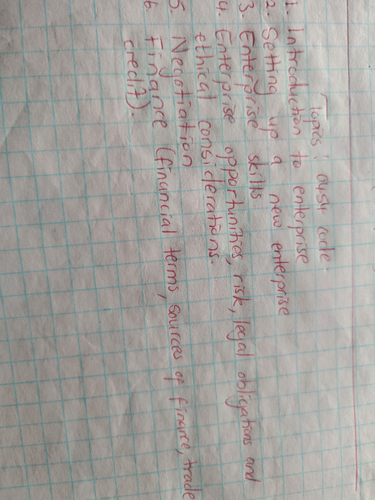 Topics: 0454 code
1. Introduction to enterprise
2. Setting up a new enterprise
3. Enterprise skills
4. Enterprise opportunities, risk, legal obligations and
ethical considerations.
5. Negotiation
6. Finance (financial terms, sources of finance, trade
credit).